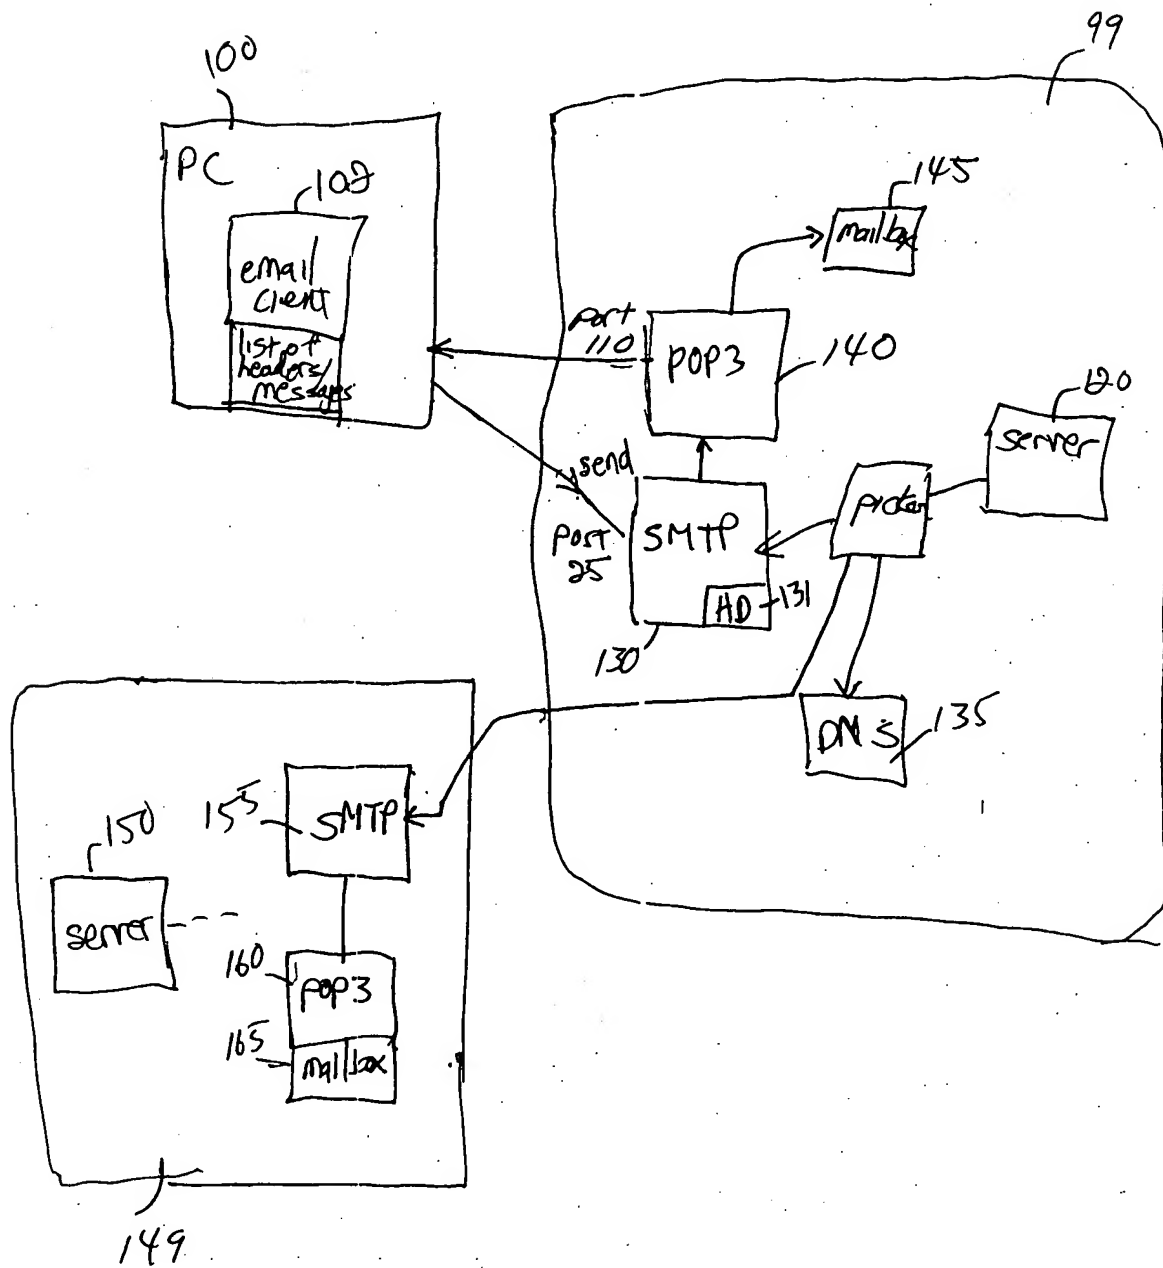 99
100
PC
102
email
client
list of
headers/
messages
145
mailbox
port
110
POP3
140
120
server
send
port
25
SMTP
HD
131
130
DNS
135
155
SMTP
150
server
160
POP3
165
mailbox
149